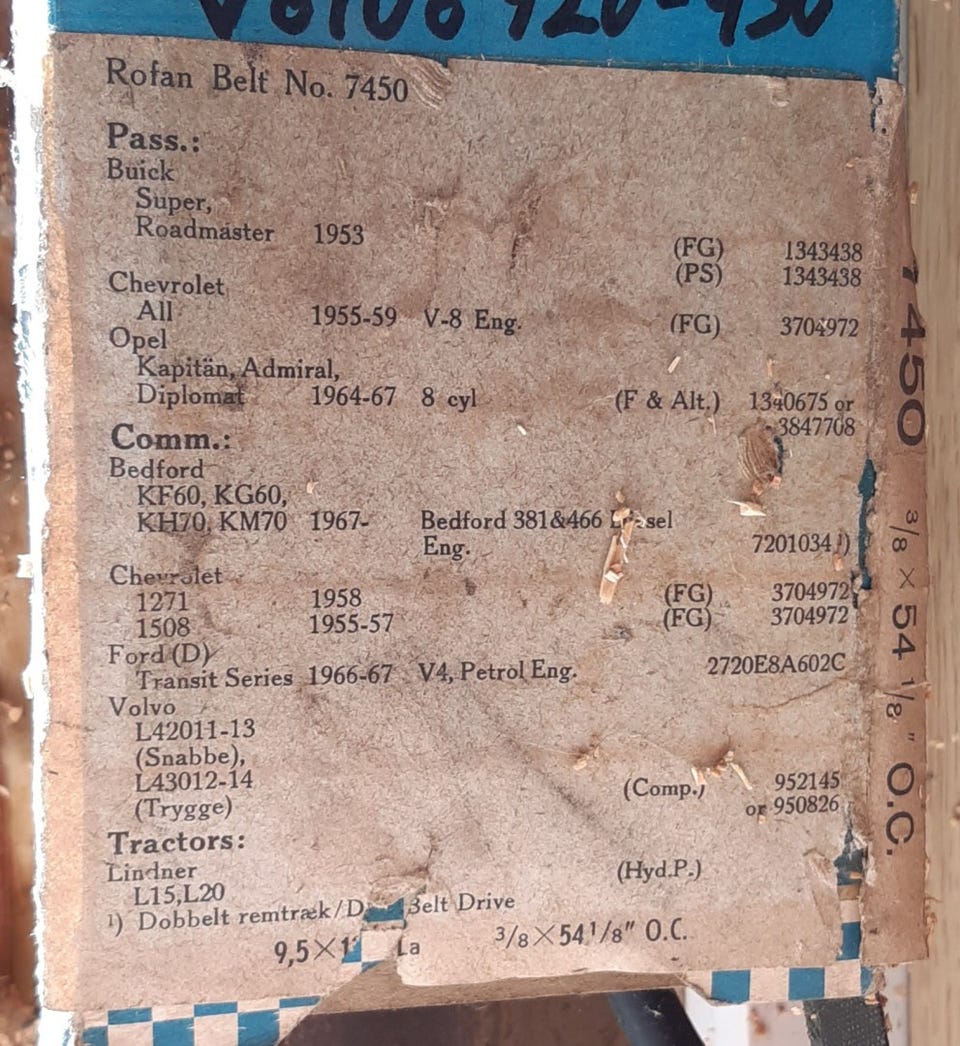 Volvo 420-430
Rofan Belt No. 7450
Pass.:
Buick
Super,
Roadmaster 1953 (FG) 1343438
(PS) 1343438
Chevrolet
All 1955-59 V-8 Eng. (FG) 3704972
Opel
Kapitän, Admiral,
Diplomat 1964-67 8 cyl (F & Alt.) 1340675 or
3847708
Comm.:
Bedford
KF60, KG60,
KH70, KM70 1967- Bedford 381&466
Eng. 7201034 ¹)
Chevrolet
1271 1958 (FG) 3704972
1508 1955-57 (FG) 3704972
Ford (D)
Transit Series 1966-67 V4, Petrol Eng. 2720E8A602C
Volvo
L42011-13
(Snabbe),
L43012-14 (Comp.) 952145
(Trygge) or 950826
Tractors:
Lindner (Hyd.P.)
L15,L20
¹) Dobbelt remtræk/D Belt Drive
9,5×1 La 3/8×54 1/8" O.C.
7450 3/8 × 54 1/8" O.C.